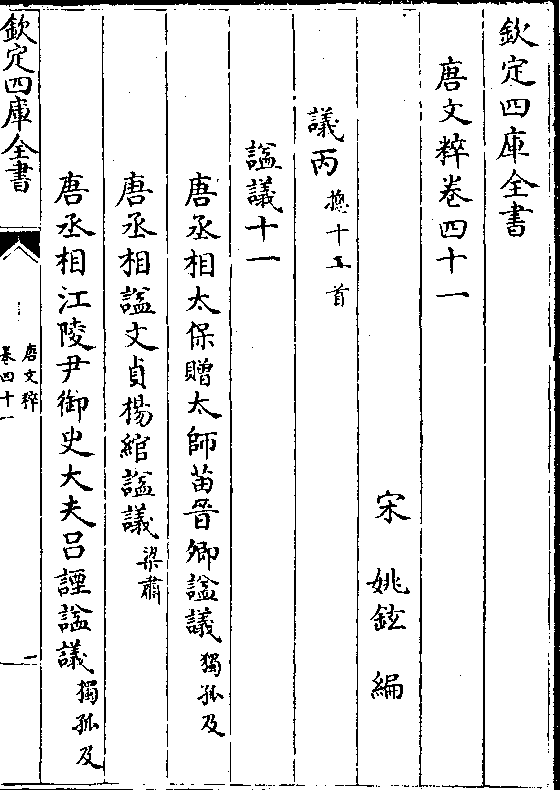 欽定四庫全書
唐文粹卷四十一
宋 姚鉉 編
議丙 摠十五首
諡議十一
唐丞相太保贈太師苗晉卿諡議 獨孤及
唐丞相諡文貞楊綰諡議 梁肅
唐丞相江陵尹御史大夫吕諲諡議 獨孤及
欽定四庫全書
唐文粹
卷四十一
一